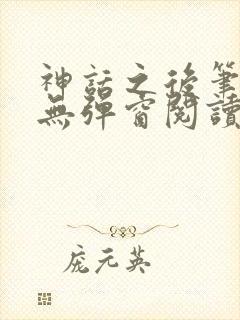 神話之後筆
無彈窗閱讀
庞元英